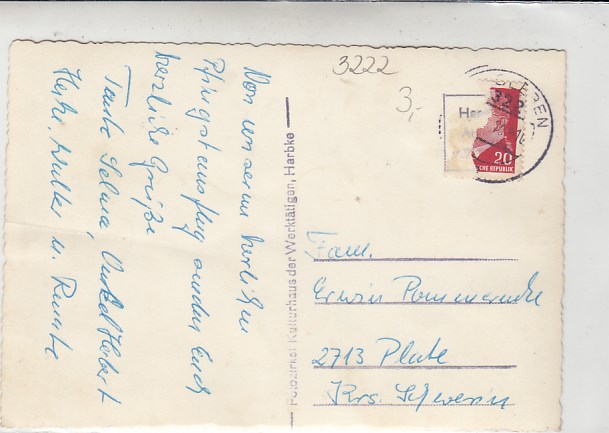 Von unserem herlichen
Pfingstausflug senden Euch
herzliche Grüße
Tante Selma, Onkel Herbert
Heike, Walter u. Renate
Fotozirkel Kulturhaus der Werktätigen, Harbke
3222
3,-
LEBEN
322
20
CHE REPUBLIK
Fam.
Erwin
2713 Plate
Krs. Schwerin